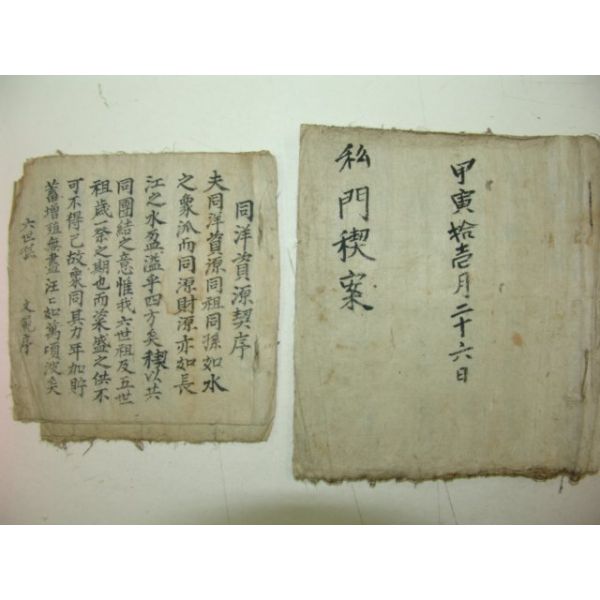 甲寅拾壱月二十六日
私門稧案
同洋資源契序
夫同洋資源同祖同孫如水
之衆派而同源財源亦如長
江之水盈溢乎四方矣稧以共
同團結之意惟我六世祖及五世
祖歲一祭之期也而粢盛之供不
可不得已故衆同其力年加貯
蓄增殖無盡汪〻如萬頃波矣
六世孫 文範序